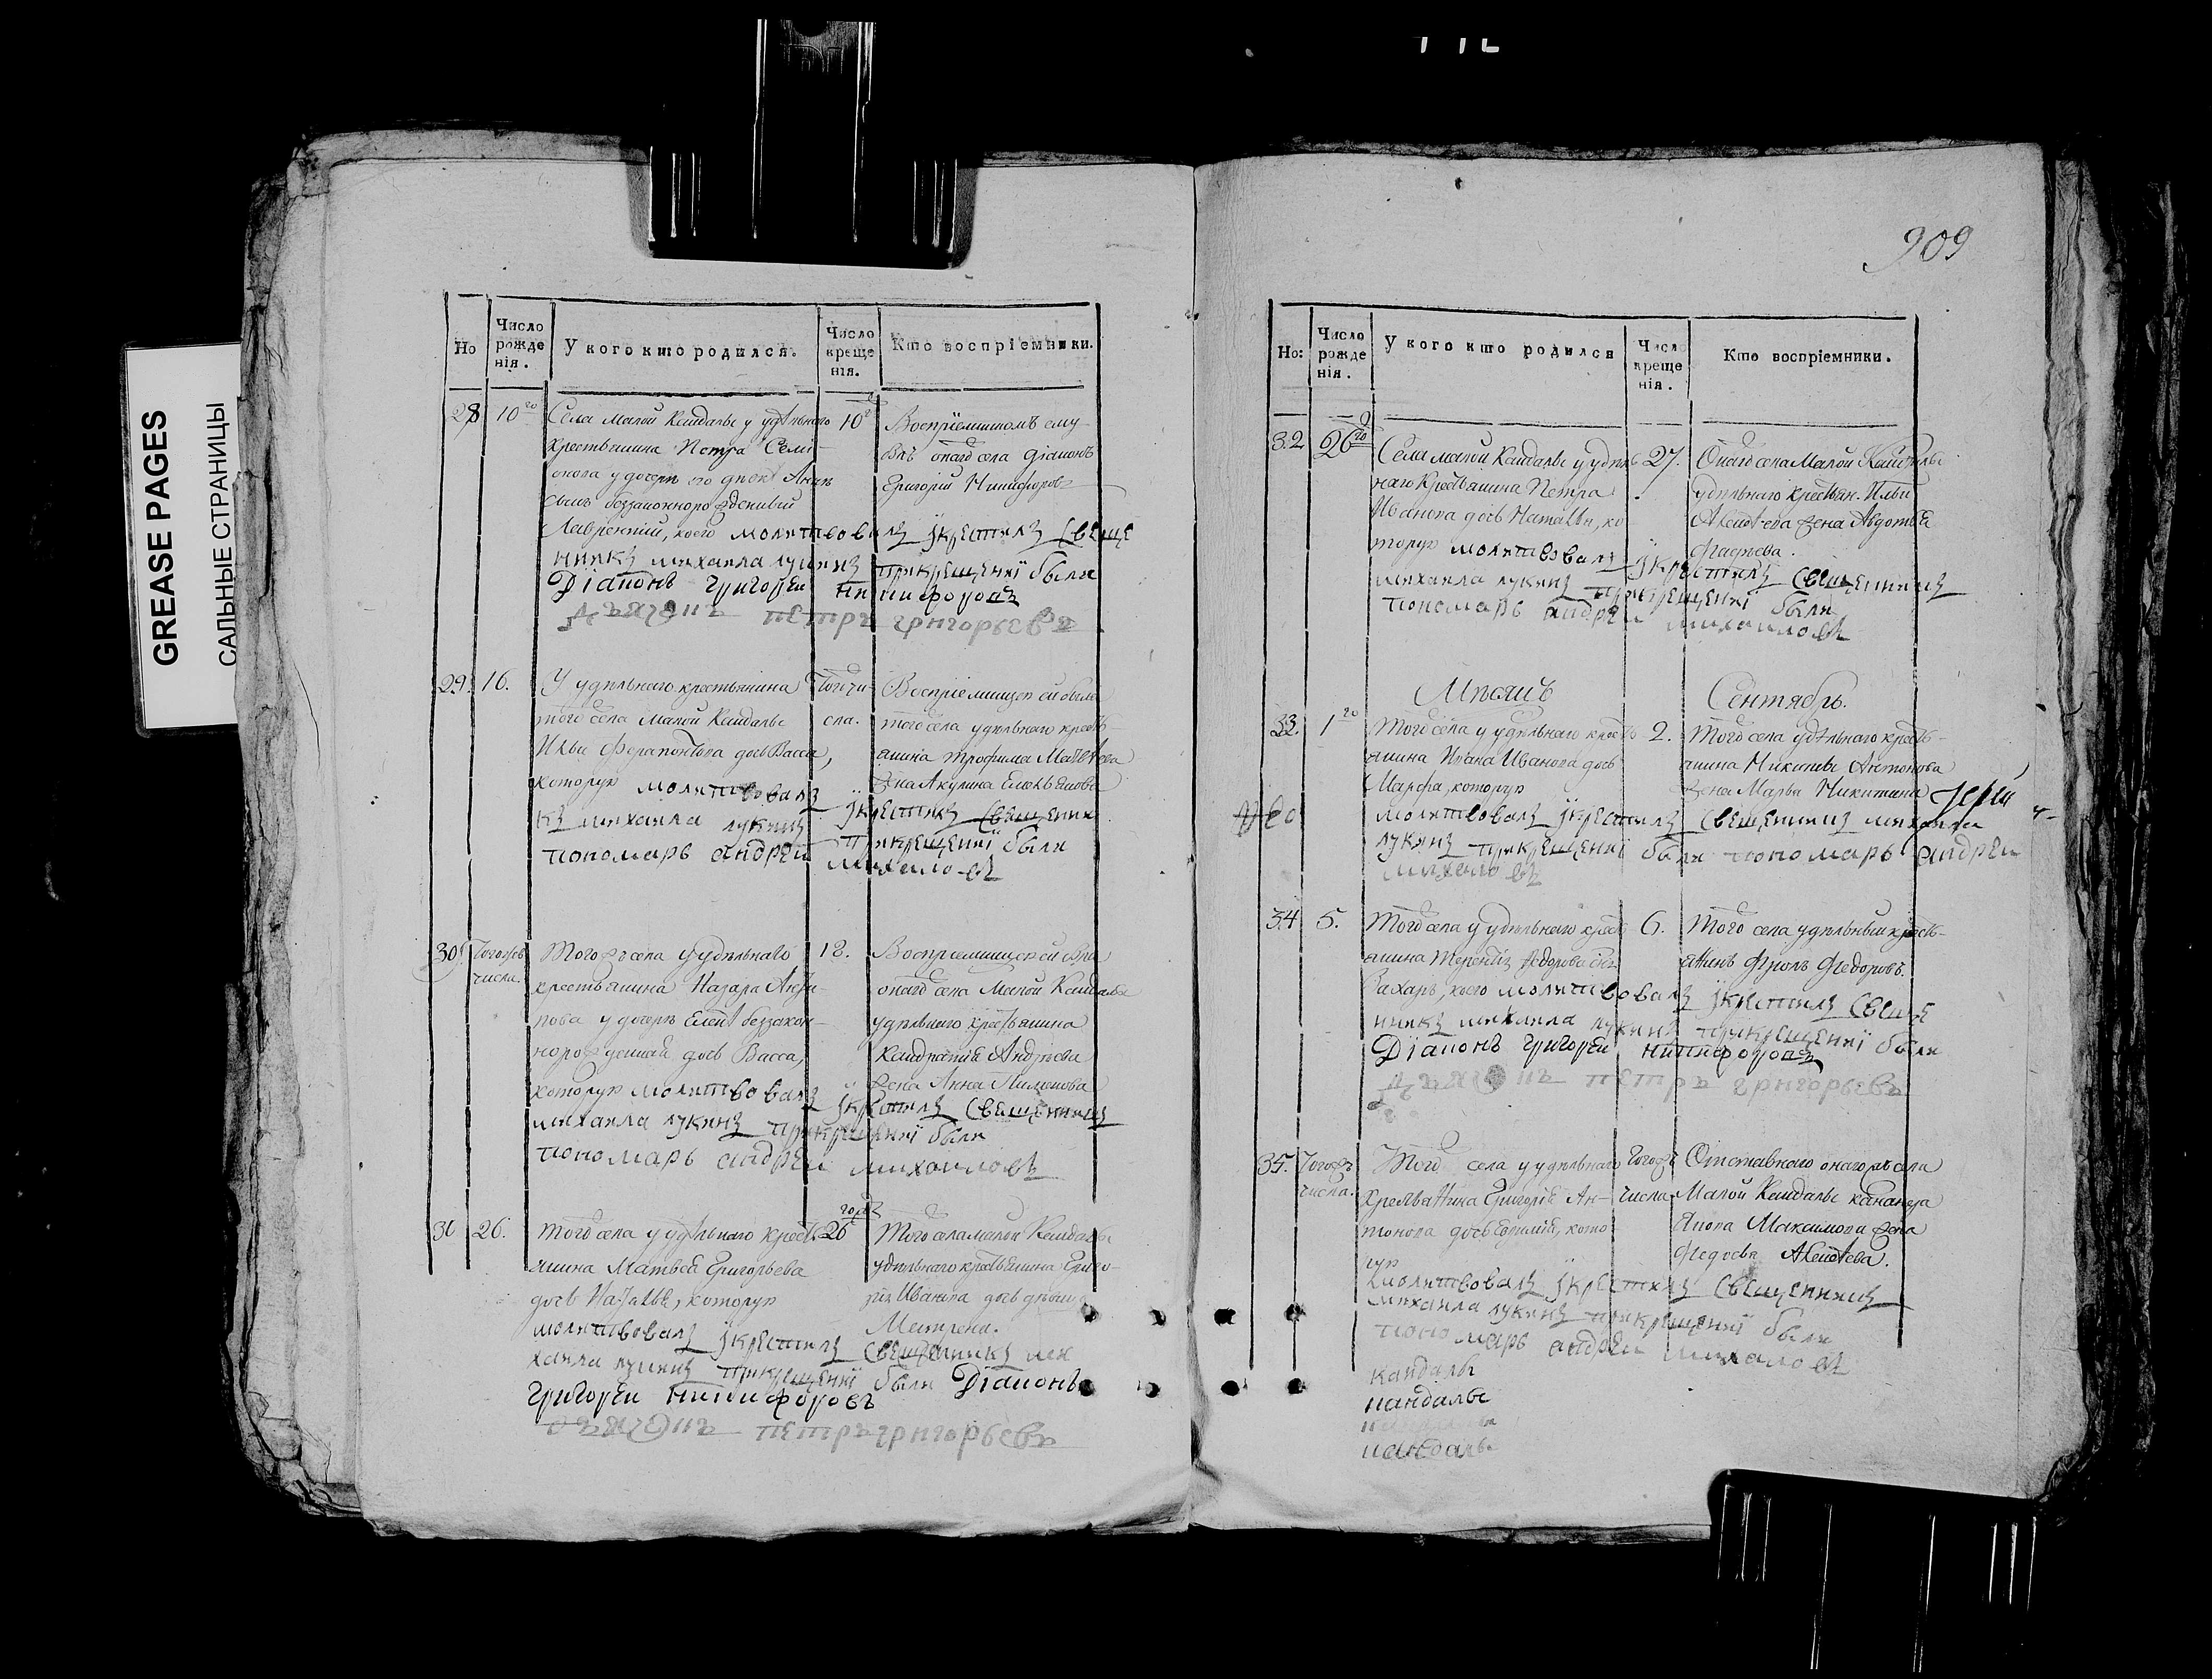 GREASE PAGES
САЛЬНЫЕ СТРАНИЦЫ
Но
Число рожденія.
У кого кто родился.
Число крещенія.
Кто воспріемники.
28
10го
Села малой Кандалы у удѣльнаго
крестьянина Петра Семи-
онова у дочери его
сынъ беззаконнорожденный
Лаврентій, коего молитвовалъ ӱкрестилъ свеще
никъ михаила лукинъ прикрещенкї были
Дїаконъ григореи никифоровъ
дъячонъ петръ григорьевъ
10
Воспріемникомъ ему
былъ онаго села діаконъ
Григорій Никифоровъ
29.
16.
У удѣльнаго крестьянина
того села Малой Кандалы
Ильи Ферапонтова дочь Васса,
которую молитвовалъ ӱкрестилъ свещени
къ михаила лукинъ прикрещенкї были
пономарь андреи михаиловъ
того чи-
сла.
Воспріемницею ей была
того села удѣльнаго кресть-
янина Трофима Матвѣева
жена Акулина Емельянова
30.
Тогожъ
числа.
Тогожъ села у удѣльнаго
крестьянина Назара
у дочери Елены беззакон-
норожденная дочь Васса,
которую молитвовалъ ӱкрестилъ свещенникъ
михаила лукинъ прикрещенкї были
пономарь андреи михаиловъ
18.
Воспріемницею ей была
онаго села Малой Кандалы
удѣльнаго крестьянина
Кандратія Андреева
жена Анна Пименова
31
26.
Того села у удѣльнаго кресть-
янина Матвея Григорьева
дочь Наталья, которую
молитвовалъ ӱкрестилъ свещенникъ ми
хаила лукинъ прикрещенкї были Дїаконъ
григореи никифоровъ
дъячонъ петръ григорьевъ
26
Того села малой Кандалы
удѣльнаго крестьянина Григо-
рія Иванова дочь девица
Матрена.
909
Но:
Число рожденія.
У кого кто родился
Число крещенія.
Кто воспріемники.
32
26го
Села малой Кандалы у удѣль-
наго крестьянина Петра
Иванова дочь Наталья, ко-
торую молитвовалъ ӱкрестилъ свещенникъ
михаила лукинъ прикрещенкї были
пономарь андреи михаиловъ
27.
Онаго села Малой Кандалы
удѣльнаго крестьян. Ильи
жена Авдотья
Фадѣева.
Мѣсяцъ Сентябрь.
33.
1го
Того села у удѣльнаго кресть-
янина Ивана Иванова дочь
Марфа, которую
молитвовалъ ӱкрестилъ свещенникъ михаила
лукинъ прикрещенкї были пономарь андреи
михаиловъ
2.
Того села удѣльнаго кресть-
янина Никиты Антонова
жена Марья Никитина
34
5.
Того села у удѣльнаго кресть-
янина Терентія Федорова сынъ
Захаръ, коего молитвовалъ ӱкрестилъ свеще
никъ михаила лукинъ прикрещенкї были
Дїаконъ григореи никифоровъ
дъячонъ петръ григорьевъ
6.
Того села удѣльный кресть-
янинъ Фролъ Федоровъ.
35.
Тогожъ
числа.
Того села у удѣльнаго
крестьянина Григорія Ан-
тонова дочь кото-
рую
молитвовалъ ӱкрестилъ свещенникъ
михаила лукинъ прикрещенкї были
пономарь андреи михаиловъ
Тогожъ
числа
Отставнаго онаго жъ села
Малой Кандалы канонера
Якова Максимова жена
Федосья
кандалы
кандалы
кандалы